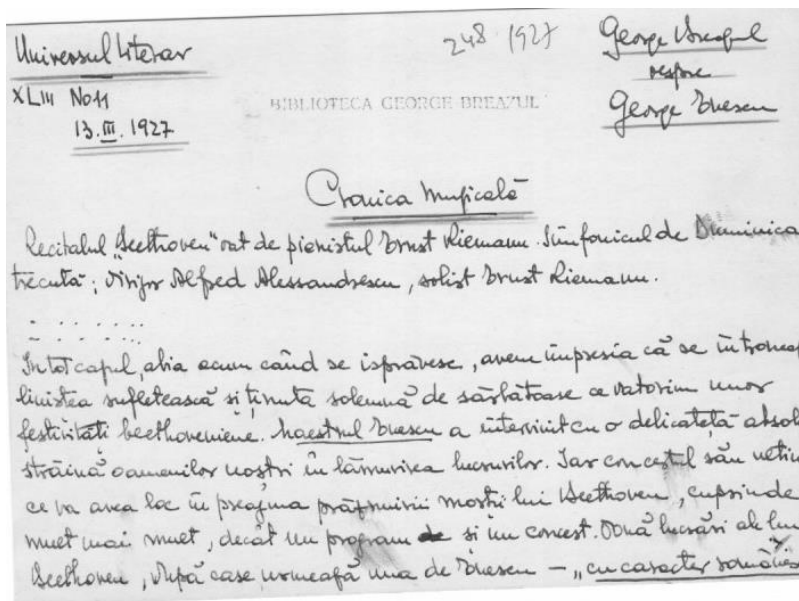 Universul literar
248 1927
George Breazul
despre
George Enescu
XLIII No 11
13.III.1927
BIBLIOTECA GEORGE BREAZUL
Cronica muzicală
Recitalul „Beethoven” dat de pianistul Ernst Riemann. Simfonicul de Duminica
trecută; dirijor Alfred Alessandrescu, solist Ernst Riemann.
. . . . . . . .
In tot capul, abia acum când se isprăvesc, avem impresia că se întronează
liniștea sufletească și ținuta solemnă de sărbătoare ce datorim unor
festivități beethoveniene. Maestrul Enescu a intervenit cu o delicateță absol
străină oamenilor noștri în lămurirea lucrurilor. Iar concertul său
ce va avea loc în preajma prăznuirii morții lui Beethoven, cuprinde
mult mai mult, decât un program de și un concert. Două lucrări ale lui
Beethoven, după care urmează una de Enescu – „cu caracter românesc